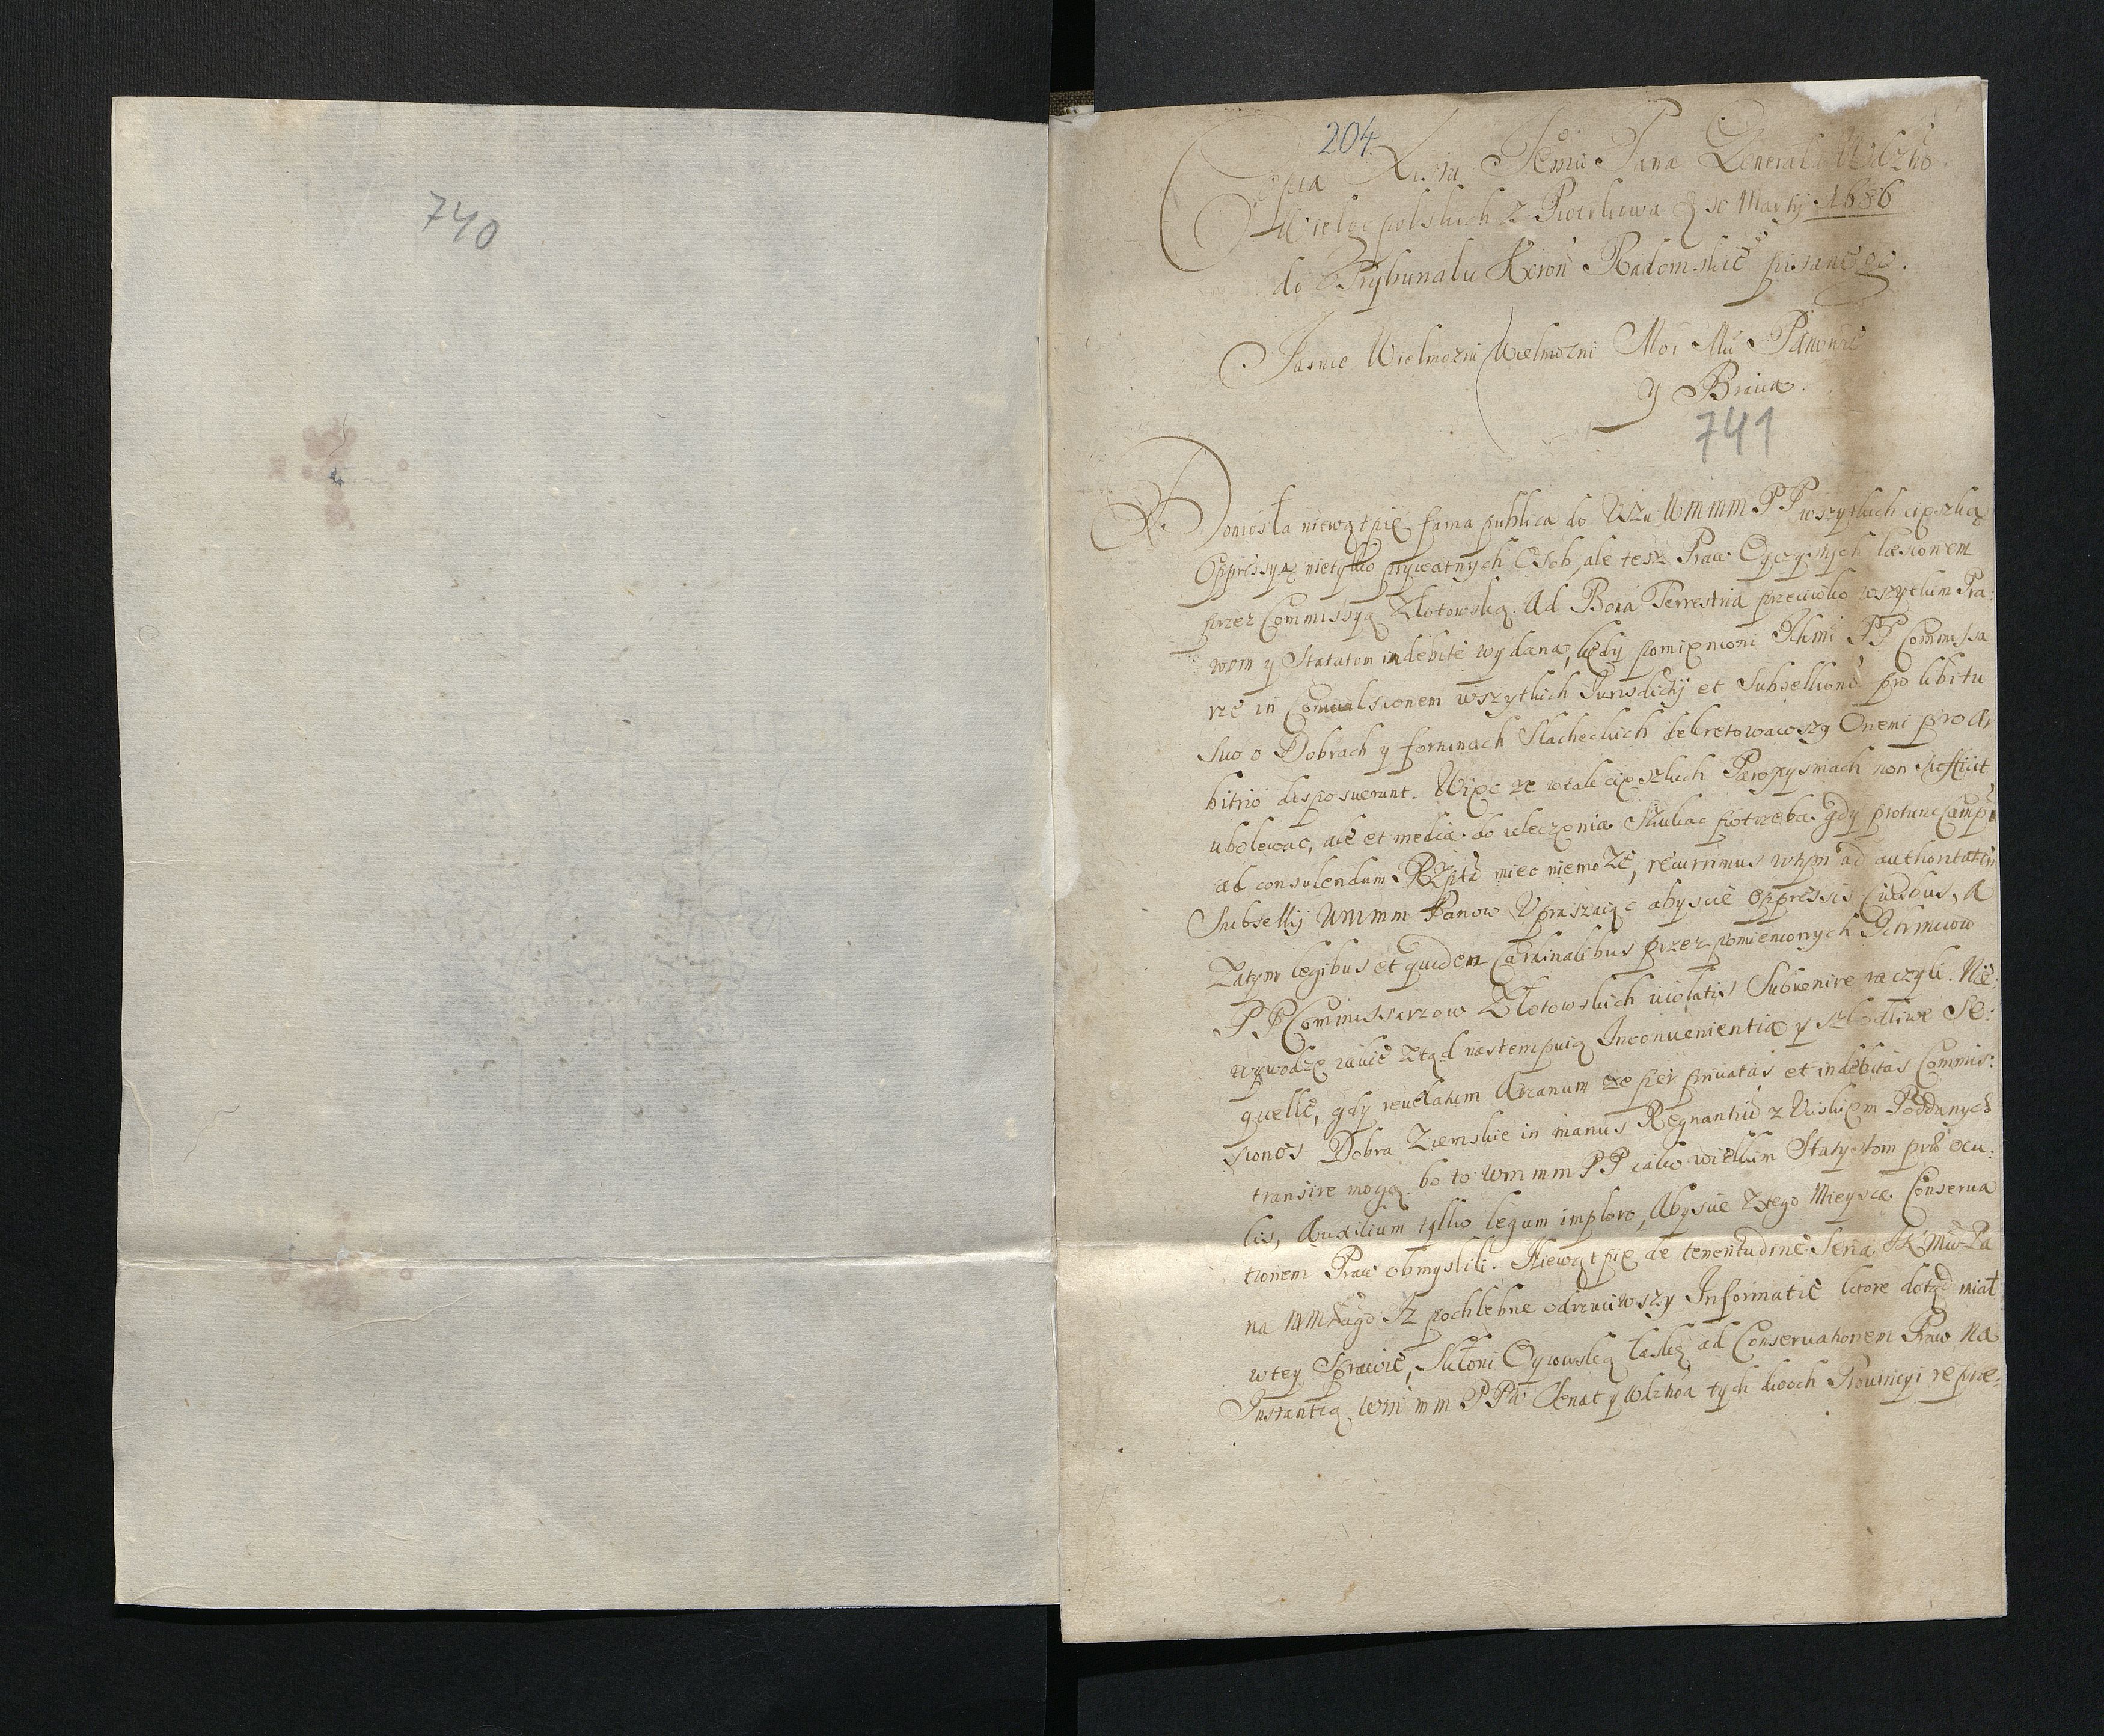 740
204.
Copia Listu Jemci Pana Generała Wdztw
Wielgopolskich z Piotrkowa d 10 Martij 1686
do Trybunalu Koron Radomskie pisanego.
Jasnie Wielmozni Wielmozni Moi Mci Panowie
y Bracia.
741
Doniosła niewątpię fama publica do Uszu Wmmm PP wszytkich cięszką
Oppressyą nietylko prywatnych Osob, ale tesz Praw Oyczystych læsionem
przez Commissyą Złotowską Ad Bona Terrestria przeciwko wszytkim Pra:
wom y Statutom indebite wydaną, kędy pomięnioni Ichmi PP Commissa
rze in Convulsionem wszytkich Jurisdictij et Subsellionu pro libitu
suo o Dobrach y fortunach Slacheckich dekretowawszy Onemi pro ar
bitrio disposuerunt. Więc ze wtak cięszkich Paropysmach non sufficit
ubolewac, ale et media do uleczenia Szukac potrzeba gdy protunc Camp
ad consulendum Rzpta miec niemoże, recurrimus wtym ad authoritatem
Subsellij Wmmm Panow Upraszaiąc abyscie Oppressis Civibus, A
Zatym legibus et quidem Cardinalibus przez pomienionych Ichmciow
PP Commissarzow Złotowskich violatis Subvenire raczyli. Nie:
wywodzę iakie ztąd nastempuią Inconvenientia y szkodliwe Se:
quelle, gdy revelatum Arcanum ze per privatas et indebitas Commis:
siones Dobra Ziemskie in manus Regnantiu z Usiskięm Poddanych
transire mogą. bo to Wm mm PP iako wielkim Statystom præ ocu:
lis, Auxilium tylko legum imploro, Abyscie Ztego Mieysca Conserva
tionem Praw obmyslili. Niewątpię de clementudine Sena JK Mci Pa
na MMłgo Iz pochlebne odrzuciwszy Informatie ktore dotąd miał
wtey Sprawie, Skłoni Oycowską łaską ad Conservationem Praw Na
Instantią Wm mm PPw Senat y Wdztwa tych dwoch Prowincyi repræ: